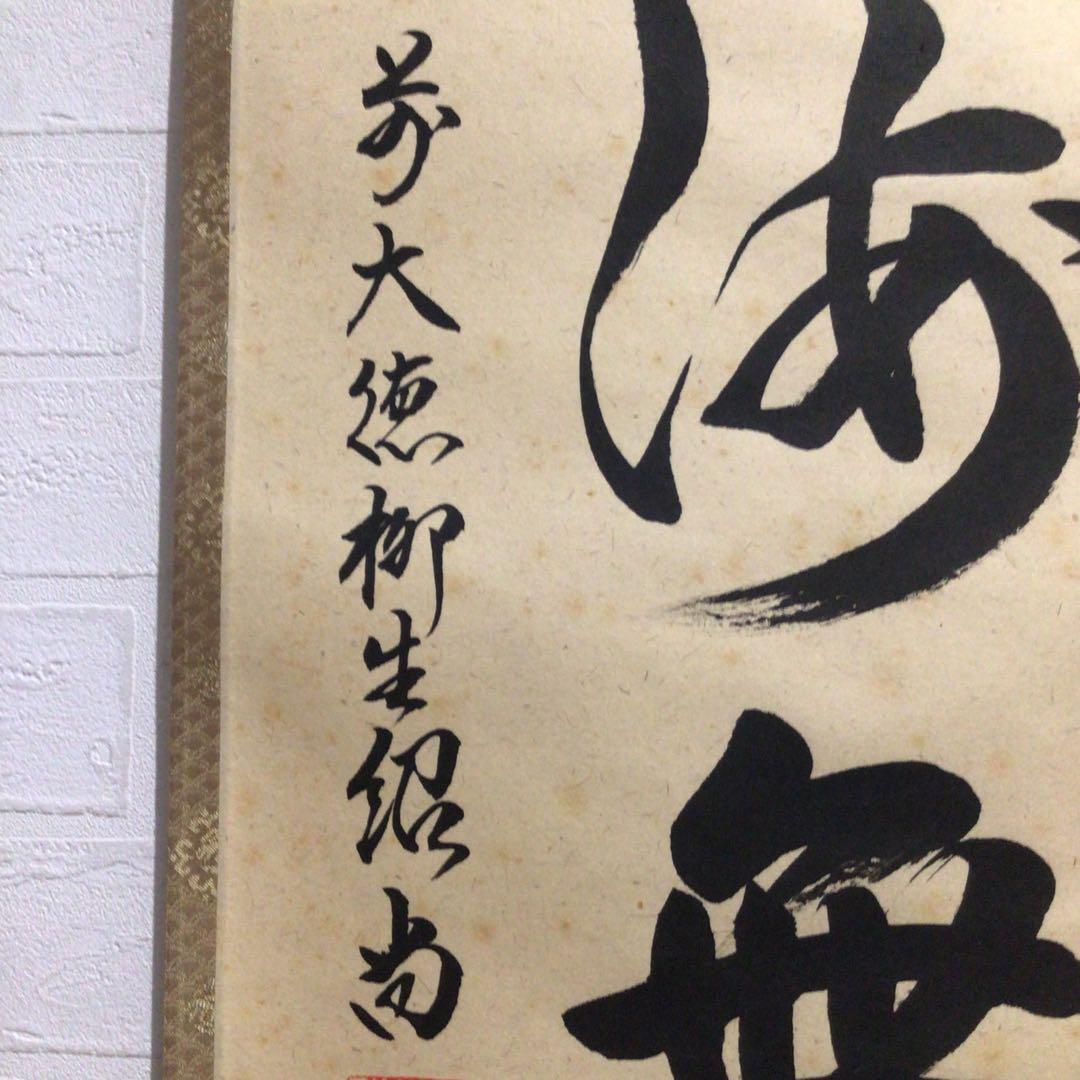 海無
前大徳柳生紹尚